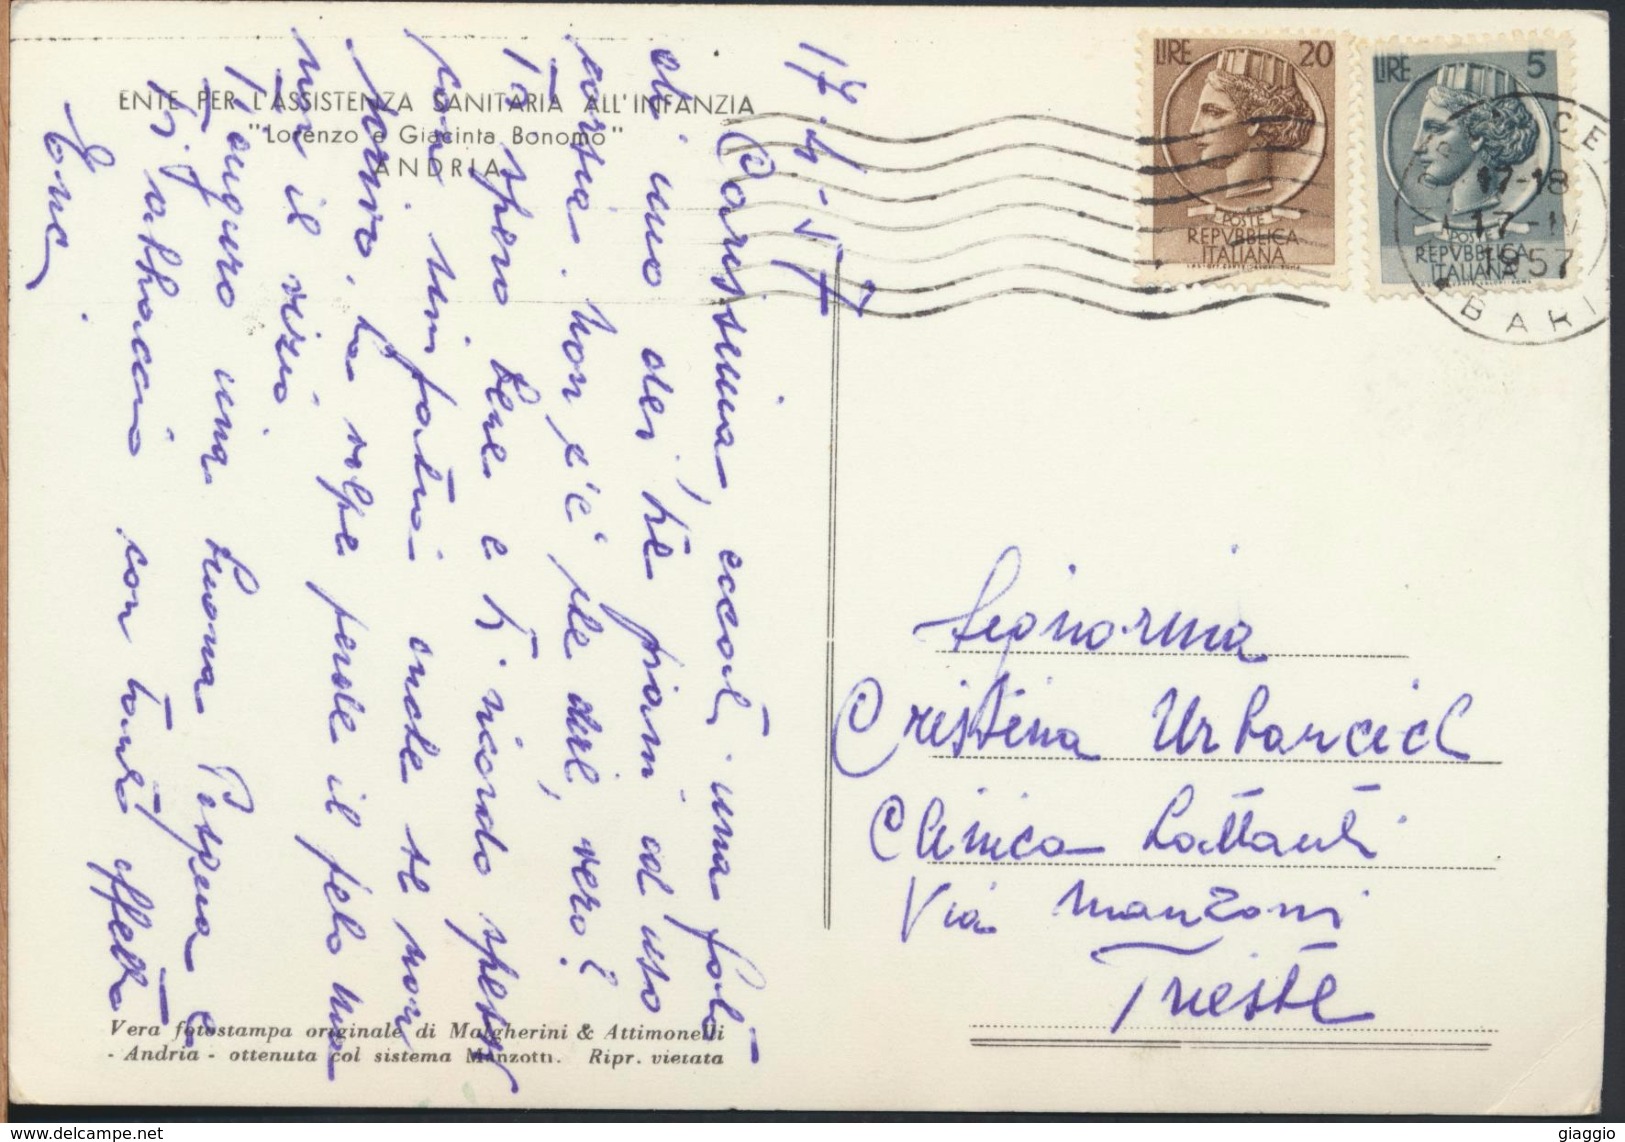 ENTE PER L'ASSISTENZA SANITARIA ALL'INFANZIA
"Lorenzo e Giacinta Bonomo"
ANDRIA
17-4-57
Carissima, eccoti una foto
di uno dei tre piani ad uso
corsie. Non c'è che dire, vero?
Ti spero bene e ti ricordo spesso
con
la volpe perde il pelo ma
non il vizio
T'auguro una buona Pasqua e
ti abbraccio con tanto affetto
LIRE 20
POSTE
REPVBBLICA
ITALIANA
LIRE 5
POSTE
REPVBBLICA
ITALIANA
17-18
17-IV
1957
BARI
Signorina
Cristina Urbancich
Clinica Lattanti
Via Manzoni
Trieste
Vera fotostampa originale di Malgherini & Attimonelli
- Andria - ottenuta col sistema Manzotti. Ripr. vietata
delcampe.net
giaggio